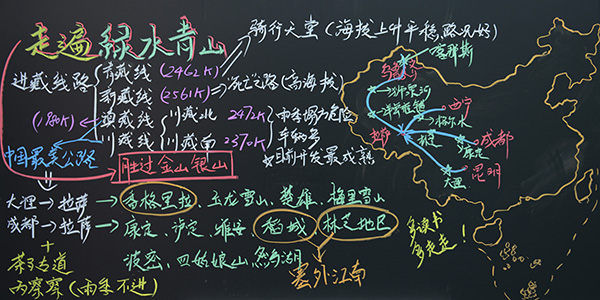 走遍绿水青山
骑行天堂(海拔上升平稳 路况好)
进藏线路
青藏线 (2462K)
新藏线 (2561K) → 死亡之路(高海拔)
(1980K) 滇藏线
川藏北 2972K
川藏线
川藏南 2370K
中国最美公路
胜过金山银山
大理→拉萨→香格里拉、玉龙雪山、楚雄、梅里雪山
成都→拉萨→康定、泸定、雅安 稻城 林芝地区
波密、四姑娘山、然乌湖
塞外江南
+
茶马古道
丙察察(雨季不进)
喀那斯
狮泉河
西宁
格尔木
拉萨
林芝
成都
康定
大理
昆明
多读书
多走走!